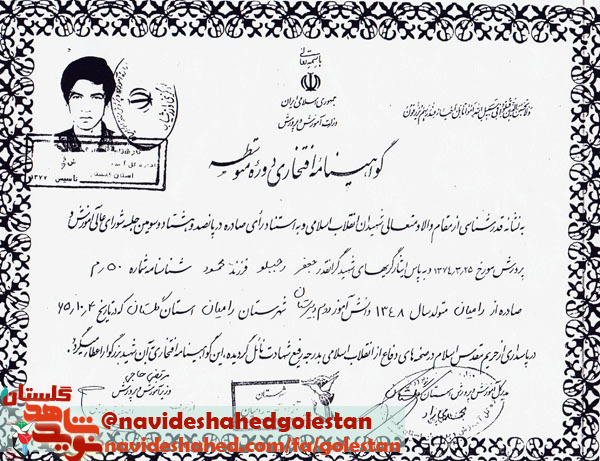 باسمه تعالی
جمهوری اسلامی ایران
وزارت آموزش و پرورش
گواهینامه افتخاری دوره متوسطه
به نشانه قدرشناسی از مقام والا و متعالی شهیدان انقلاب اسلامی و به استناد رأی صادره در پانصد و هشتاد و سومین جلسه شورای عالی آموزش و
پرورش مورخ ۱۳۷۴/۳/۲۵ و به پاس ایثارگریهای شهید گرانقدر جعفر رجبلو فرزند محمود شناسنامه شماره ۵۰ رم
صادره از رامیان متولد سال ۱۳۴۸ دانش آموز دوم دبیرستان شهرستان رامیان استان گلستان که در تاریخ ۶۵/۱۰/۴
در پاسداری از حریم مقدس اسلام در صحنه های دفاع از انقلاب اسلامی به درجه رفیع شهادت نائل گردیده، این گواهینامه افتخاری آن شهید بزرگوار اعطا میگردد.
مدیرکل آموزش و پرورش استان گلستان
مرتضی حاجی
وزیر آموزش و پرورش
گلستان
نوید شاهد
@navideshahedgolestan
navideshahed.com/fa/golestan